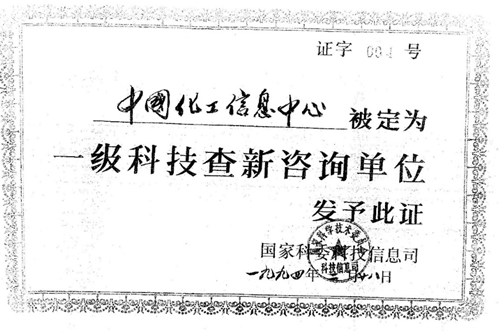 证字 004 号
中國化工信息中心 被定为
一级科技查新咨询单位
发予此证
国家科委科技信息司
科技信息司
一九九四年 月十八日